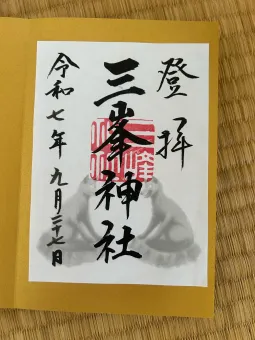 登拝
三峯神社
令和七年 九月二十七日